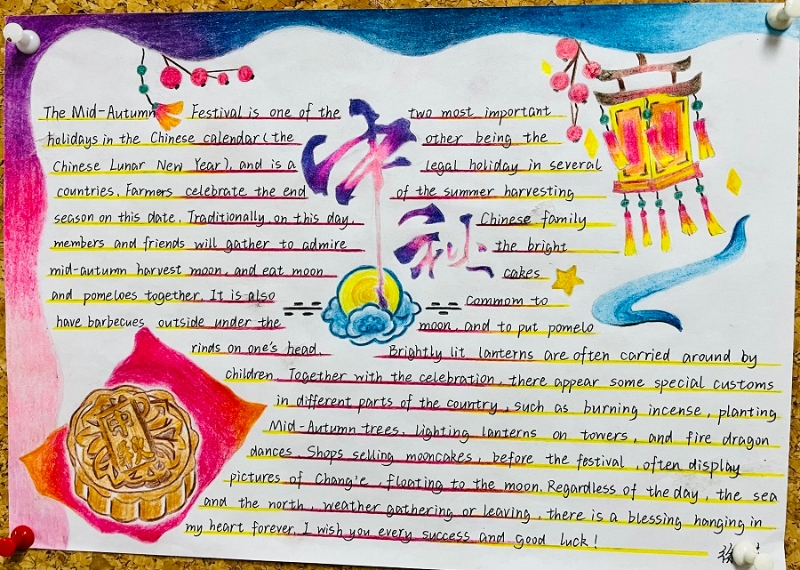 The Mid-Autumn Festival is one of the two most important
holidays in the Chinese calendar (the other being the
Chinese Lunar New Year), and is a legal holiday in several
countries. Farmers celebrate the end of the summer harvesting
season on this date. Traditionally, on this day, Chinese family
members and friends will gather to admire the bright
mid-autumn harvest moon, and eat moon cakes
and pomeloes together. It is also commom to
have barbecues outside under the moon, and to put pomelo
rinds on one's head. Brightly lit lanterns are often carried around by
children. Together with the celebration, there appear some special customs
in different parts of the country, such as burning incense, planting
Mid-Autumn trees, lighting lanterns on towers, and fire dragon
dances. Shops selling mooncakes, before the festival, often display
pictures of Chang'e, floating to the moon. Regardless of the day, the sea
and the north, weather gathering or leaving, there is a blessing hanging in
my heart forever. I wish you every success and good luck!
中
秋
中秋